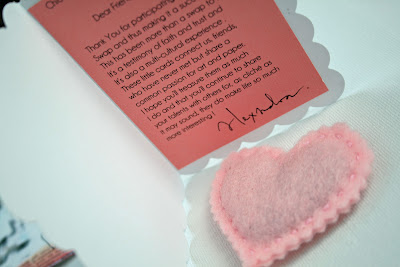 Dear Frien
Thank You for participating
Swap and thus making it a suc
This has been more than a swap to
It's a testimony of faith and trust and
It's also a multi-cultural experience
These little cards connect us, friends
who have never met but share a
common passion for art and paper.
I hope you'll treasure them as much
I do and that you'll continue to share
your talents with others for, as cliché as
it may sound, they do make life so much
more interesting!